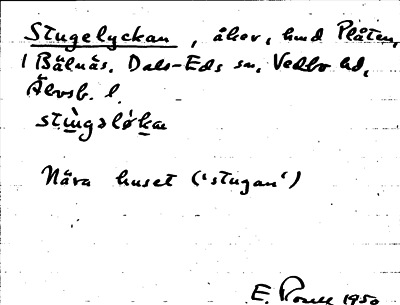 Stugelyckan, åker, hmd Plåten,
1 Bälnäs, Dals-Eds sn, Vedbo hd,
Älvsb. l.
stùgəlø̀ka
Nära huset ('stugan')
E. 1950